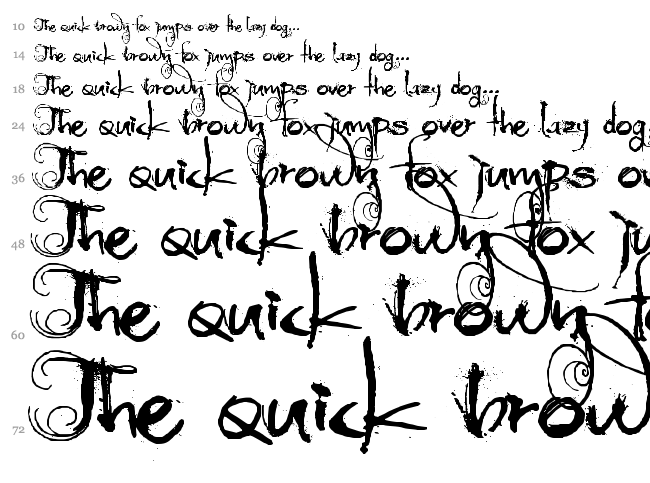 10 The quick brown fox jumps over the lazy dog...
14 The quick brown fox jumps over the lazy dog...
18 The quick brown fox jumps over the lazy dog...
24 The quick brown fox jumps over the lazy dog
36 The quick brown fox jumps ov
48 The quick brown fox ju
60 The quick brown fo
72 The quick brow